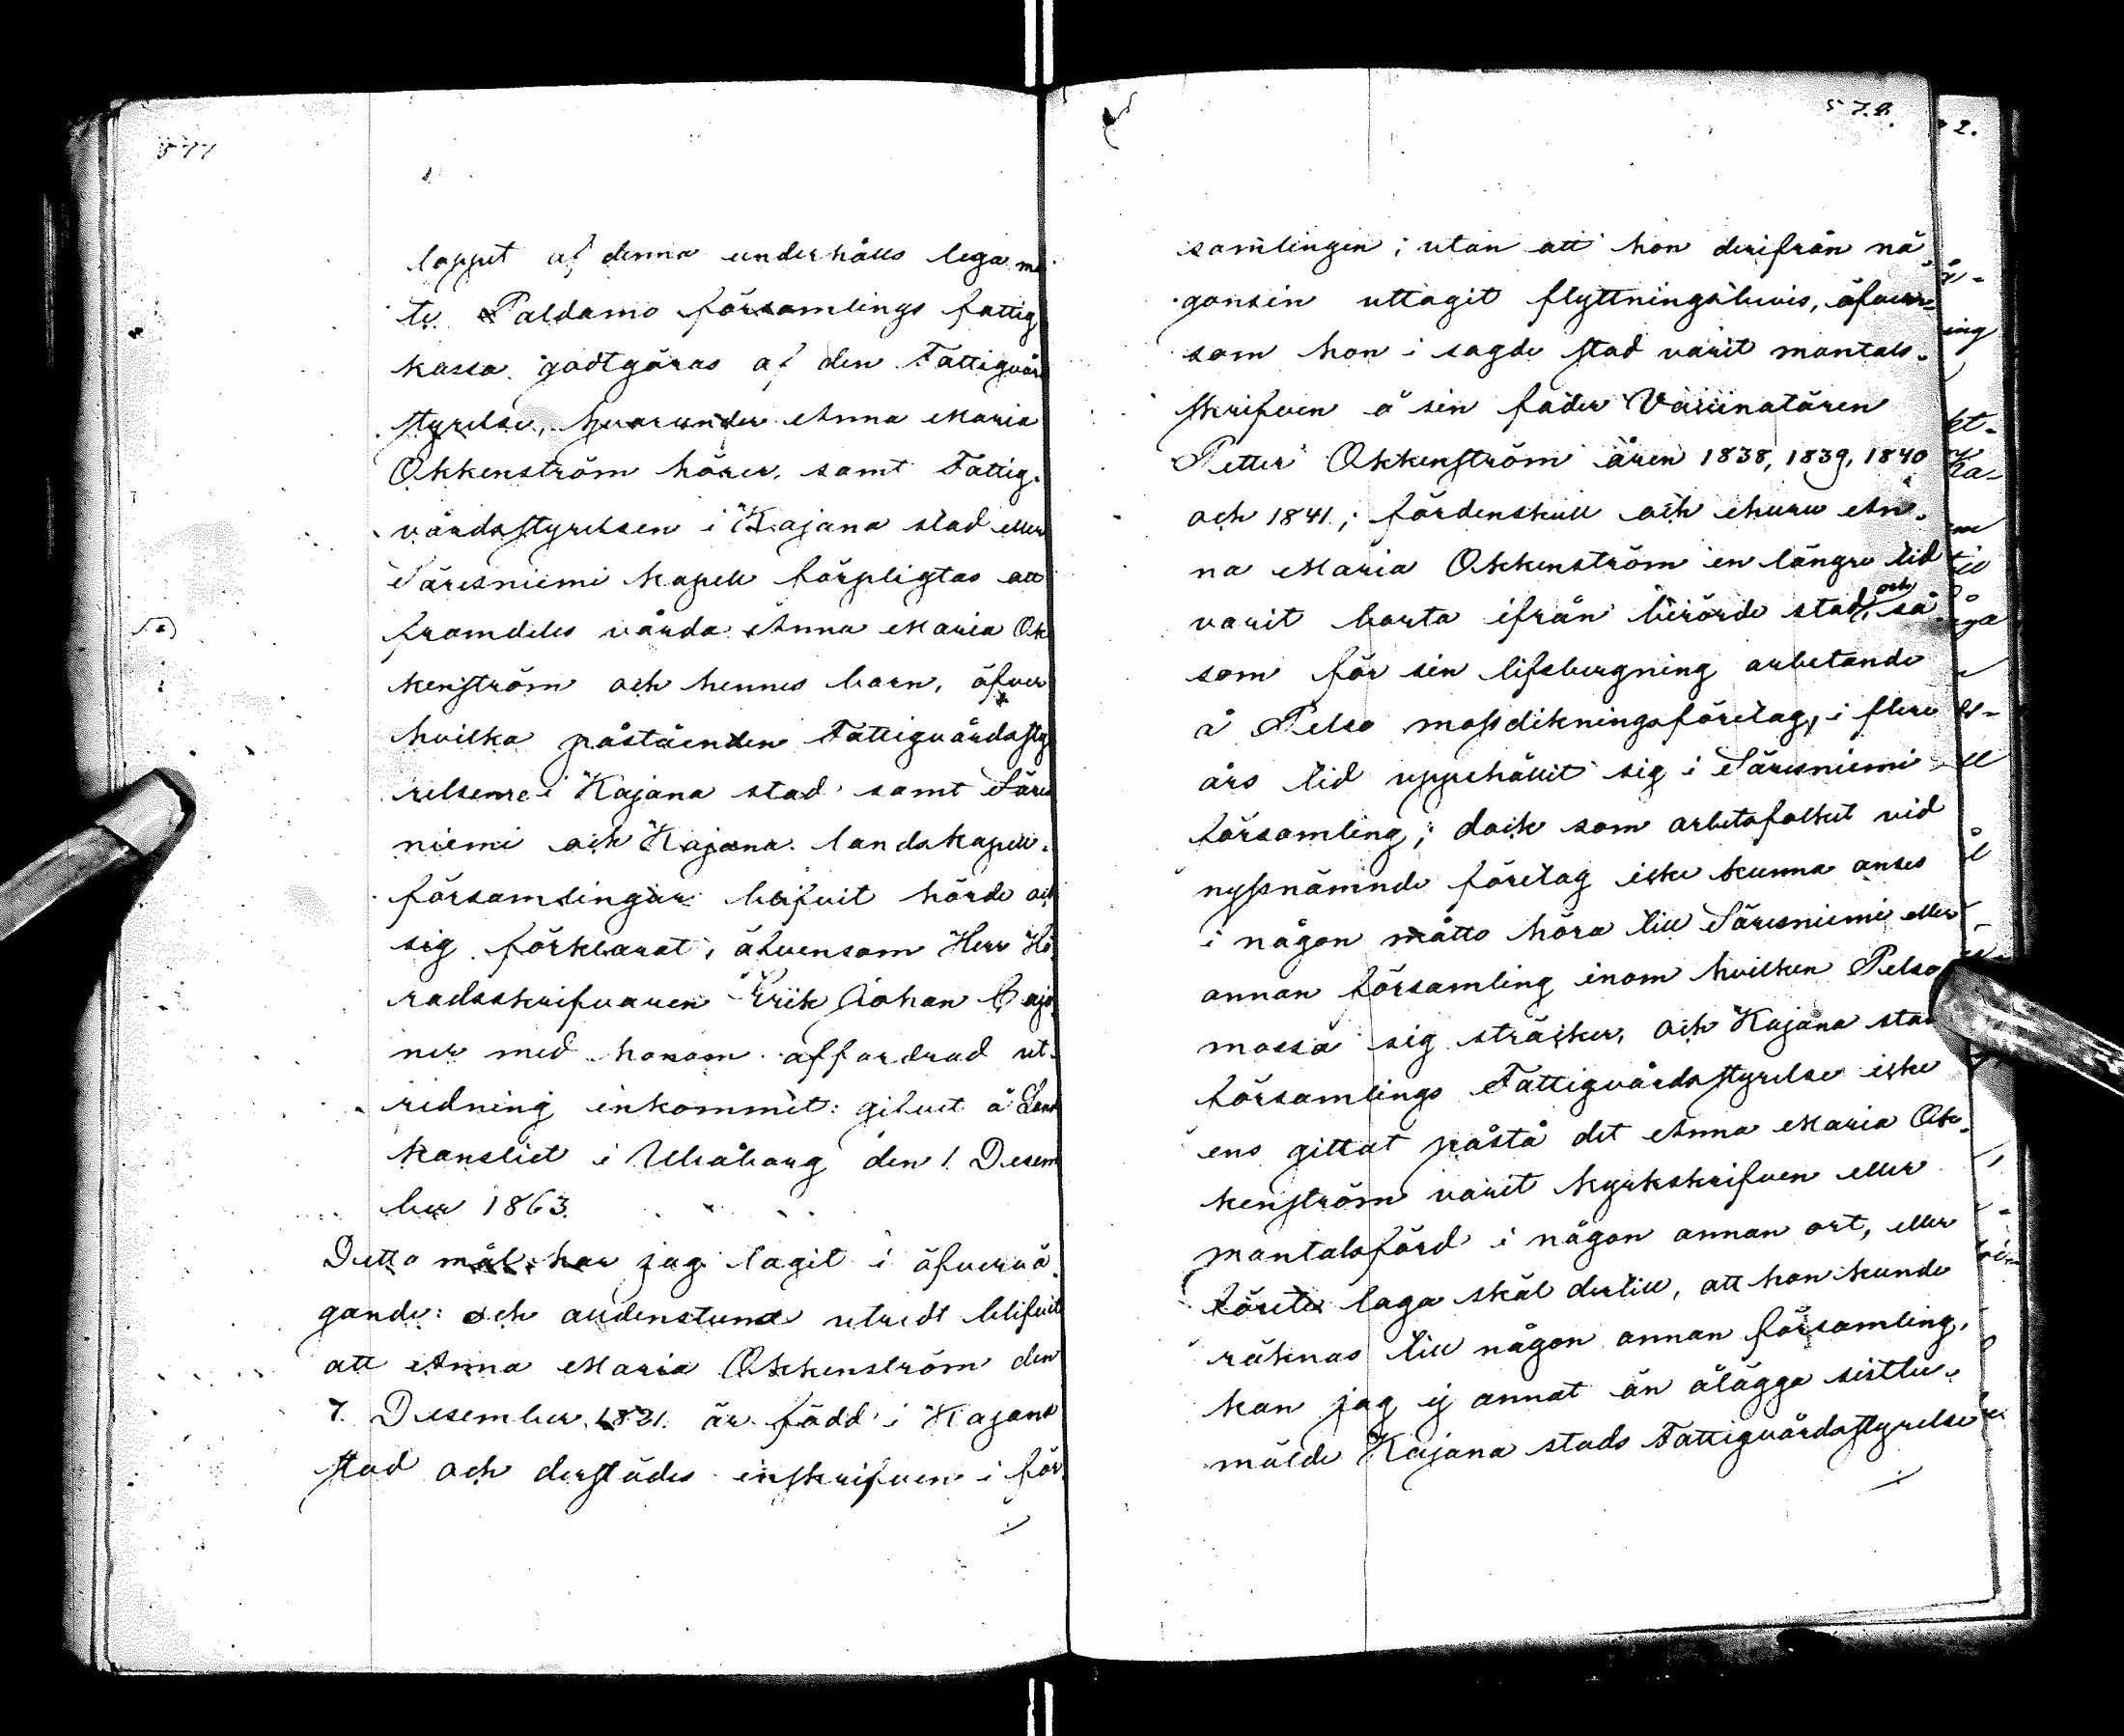 577
loppet af denna underhålls lega må
te Paldamo församlings fattig
kassa godtgöras af den Fattigvård
styrelse, hvarunder Anna Maria
Okkenström hörer, samt Fattig-
vårdsstyrelsen i Kajana stad eller
Säresniemi kapell förpligtas att
framdeles vårda Anna Maria Ok
kenström och hennes barn, öfver
hvilka påståenden Fattigvårdssty
relserne i Kajana stad samt Säres
niemi och Kajana landskapell-
församlingar blifvit hörde och
sig förklarat, äfvensom Herr Hä
radsskrifvaren Erik Johan Caja
ner med honom affordrad ut-
redning inkommit: gifvet å Lands
kansliet i Uleåborg den 1 Decem
ber 1863.
Detta mål har jag tagit i öfvervä-
gande: och alldenstund utredt blifvit
att Anna Maria Okkenström den
7. December 1821. är född i Kajana
stad och derstädes inskrifven i för
./.
578.
samlingen; utan att hon derifrån nå
gonsin uttagit flyttningsbevis, äfven-
som hon i sagde stad varit mantals-
skrifven å sin fader
Petter Okkenström åren 1838, 1839, 1840
och 1841; fördenskull och ehuru An-
na Maria Okkenström en längre tid
varit borta ifrån berörde stad, och så
som för sin lifsbergning arbetande
å Pelso mossdikningsföretag, i flere
års tid uppehållit sig i Säresniemi
församling; dock som arbetsfolket vid
nyssnämnde företag icke kunna anses
i någon måtto höra till Säresniemi eller
annan församling inom hvilken Pelso
mossa sig sträcker, och Kajana stad
församlings Fattigvårdsstyrelse icke
ens gittat påstå det Anna Maria Ok-
kenström varit kyrkskrifven eller
mantalsförd i någon annan ort, eller
förete laga skäl dertill, att hon kunde
räknas till någon annan församling,
kan jag ej annat än ålägga sistbe-
mälde Kajana stads Fattigvårdsstyrelse
./.